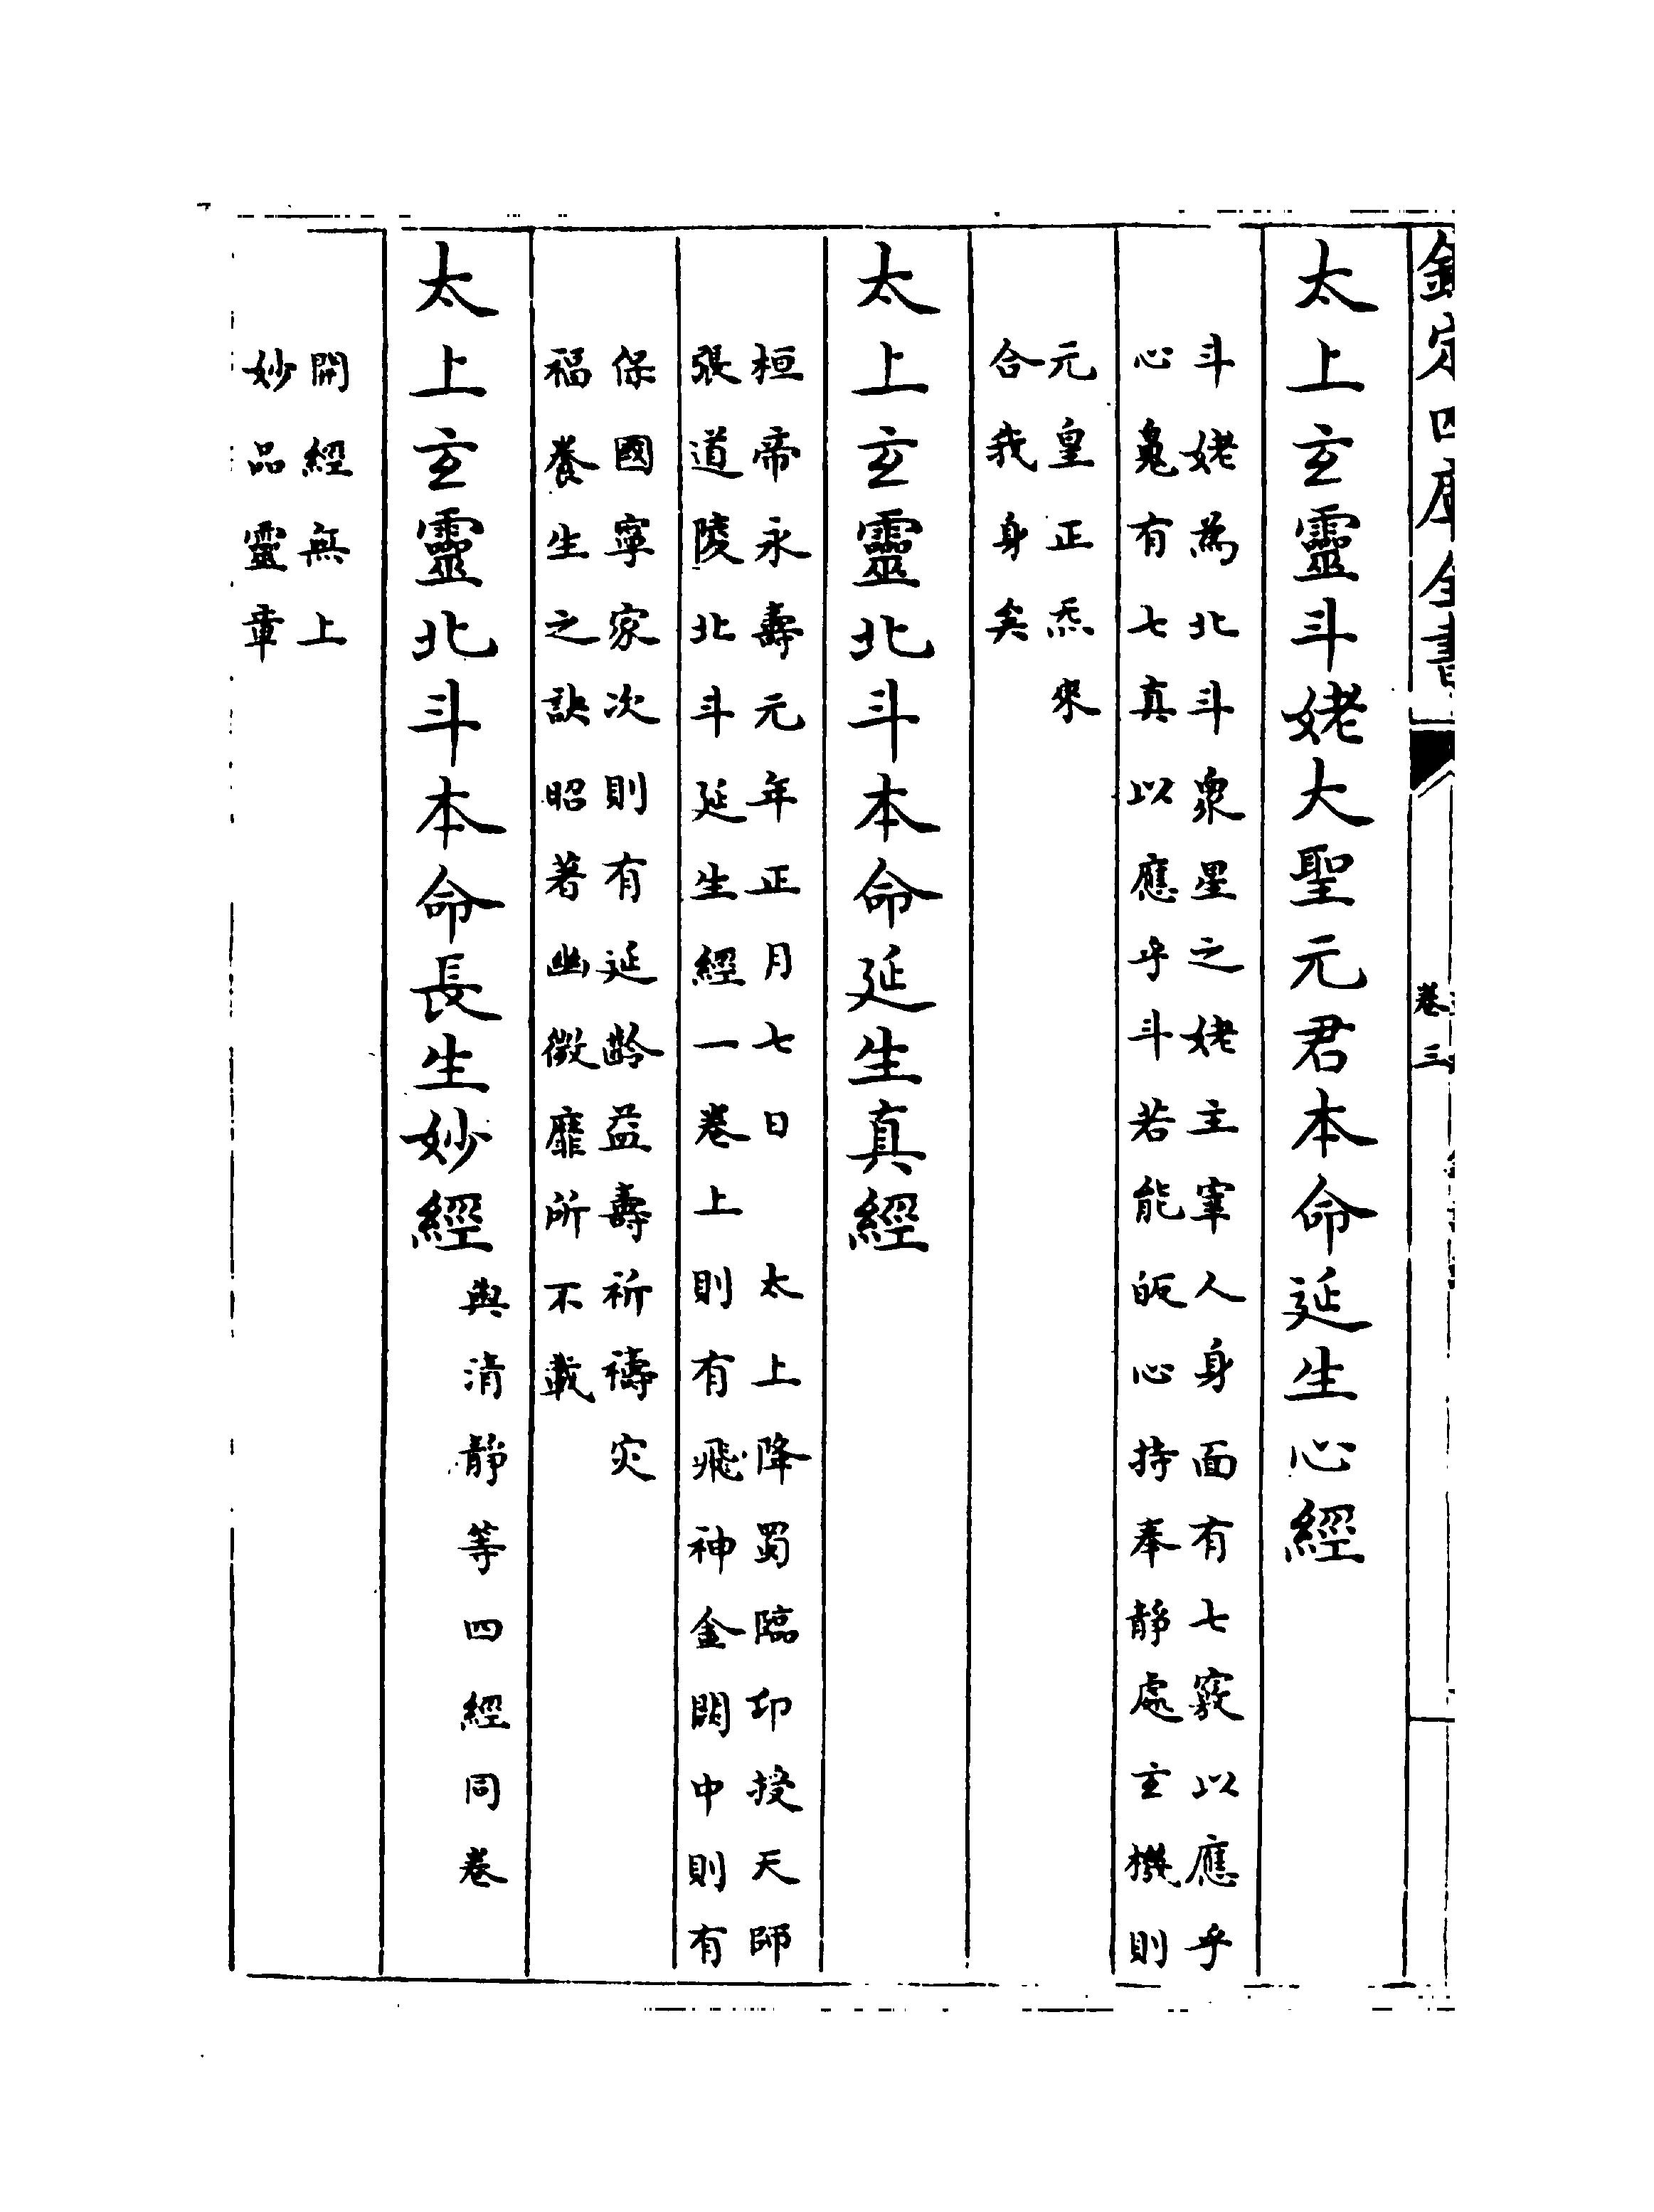 欽定四庫全書
卷三
太上玄靈斗姥大聖元君本命延生心經
斗姥為北斗衆星之姥主宰人身面有七竅以應乎
心有七真以應乎斗若能皈心持奉靜處主機則
元皇正炁來
合我身矣
太上玄靈北斗本命延生真經
桓帝永壽元年正月七日　太上降蜀臨邛授天師
張道陵北斗延生經一卷上則有飛神金闕中則有
保國寧家次則有延齡益壽祈禱灾
福養生之訣昭著幽微靡所不載
太上玄靈北斗本命長生妙經
與清靜等四經同卷
開經無上
妙品靈章